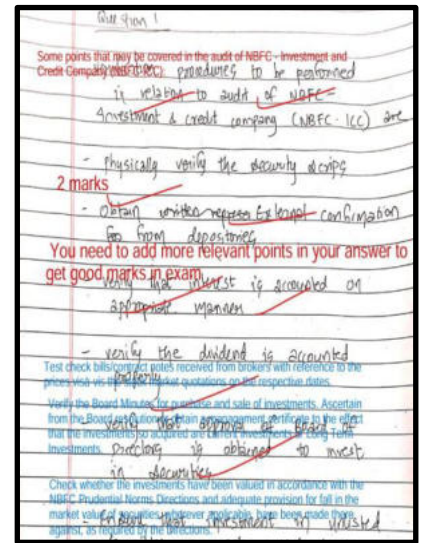 Question 1
Some points that may be covered in the audit of NBFC - Investment and
Credit Company (NBFC-ICC):
procedures to be performed
in relation to audit of NBFC-
Investment & credit company (NBFC-ICC) are
- Physically verify the security scrips
2 marks
- obtain written External confirmation
from depositories
You need to add more relevant points in your answer to
get good marks in exam
- verify that interest is accounted on
appropriate manner
- verify the dividend is accounted
properly
Test check bills/contract notes received from brokers with reference to the
prices vis-vis the market quotations on the respective dates.
Verify the Board Minutes for purchase and sale of investments. Ascertain
from the Board resolution obtain management certificate to the effect
that the investments so acquired are current investments or Long Term
Investments.
- verify that approval of Board of
Directors is obtained to invest
in securities
Check whether the investments have been valued in accordance with the
NBFC Prudential Norms Directions and adequate provision for fall in the
market value of securities, wherever applicable, have been made there
against, as required by the Directions.
- Ensure that investment in unlisted